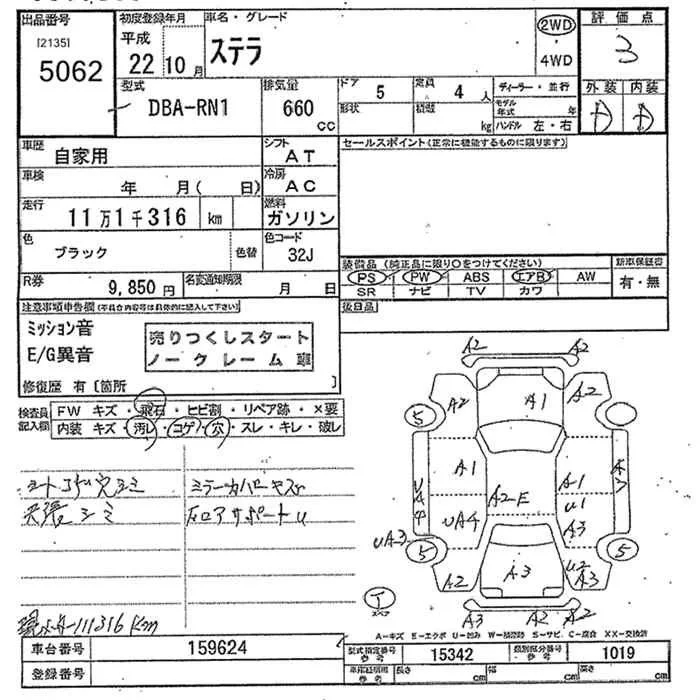 出品番号 初度登録年月 車名・グレード 評価点
[2135] 平成 ステラ 2WD 3
5062 22年 10月 4WD
型式 排気量 ドア 5 定員 4人 ディーラー・並行 外装 内装
DBA-RN1 660cc 形状 積載 kg モデル年式 年
ハンドル 左・右
車歴 自家用 シフト AT セールスポイント(正常に機能するものに限ります)
車検 年 月( 日) 冷房 AC
走行 11万1千316 km 燃料 ガソリン
色 ブラック 色替 色コード 32J
装備品(純正品に限り〇をつけてください) 新車保証書
R券 9,850円 名変通知期限 月 日 PS PW ABS エアB AW 有・無
SR ナビ TV カワ
注意事項申告欄(不具合内容等は具体的に記入して下さい) 後日品
ミッション音
E/G異音
売りつくしスタート
ノークレーム車
修復歴 有〔箇所 〕
検査員記入欄 FW キズ・飛石・ヒビ割・リペア跡・×要
内装 キズ・汚レ・コゲ・穴・スレ・キレ・破レ
シートコゲ穴シミ ミラーカバーキズ
天張シミ
A2 A2
A2 A1 A2
5
A1 A1
A2E U1
UA4 A3
UA3 5 5
A2 A3 U2 A3
A3 A2 A2
スペア
A-キズ E-エクボ U-凹み W-補修跡 S-サビ C-腐食 XX-交換済
111316 Km
車台番号 159624 型式指定番号 参考 15342 類別区分番号 参考 1019
登録番号 車庫証明用 参考 長さ cm 幅 cm 高さ cm